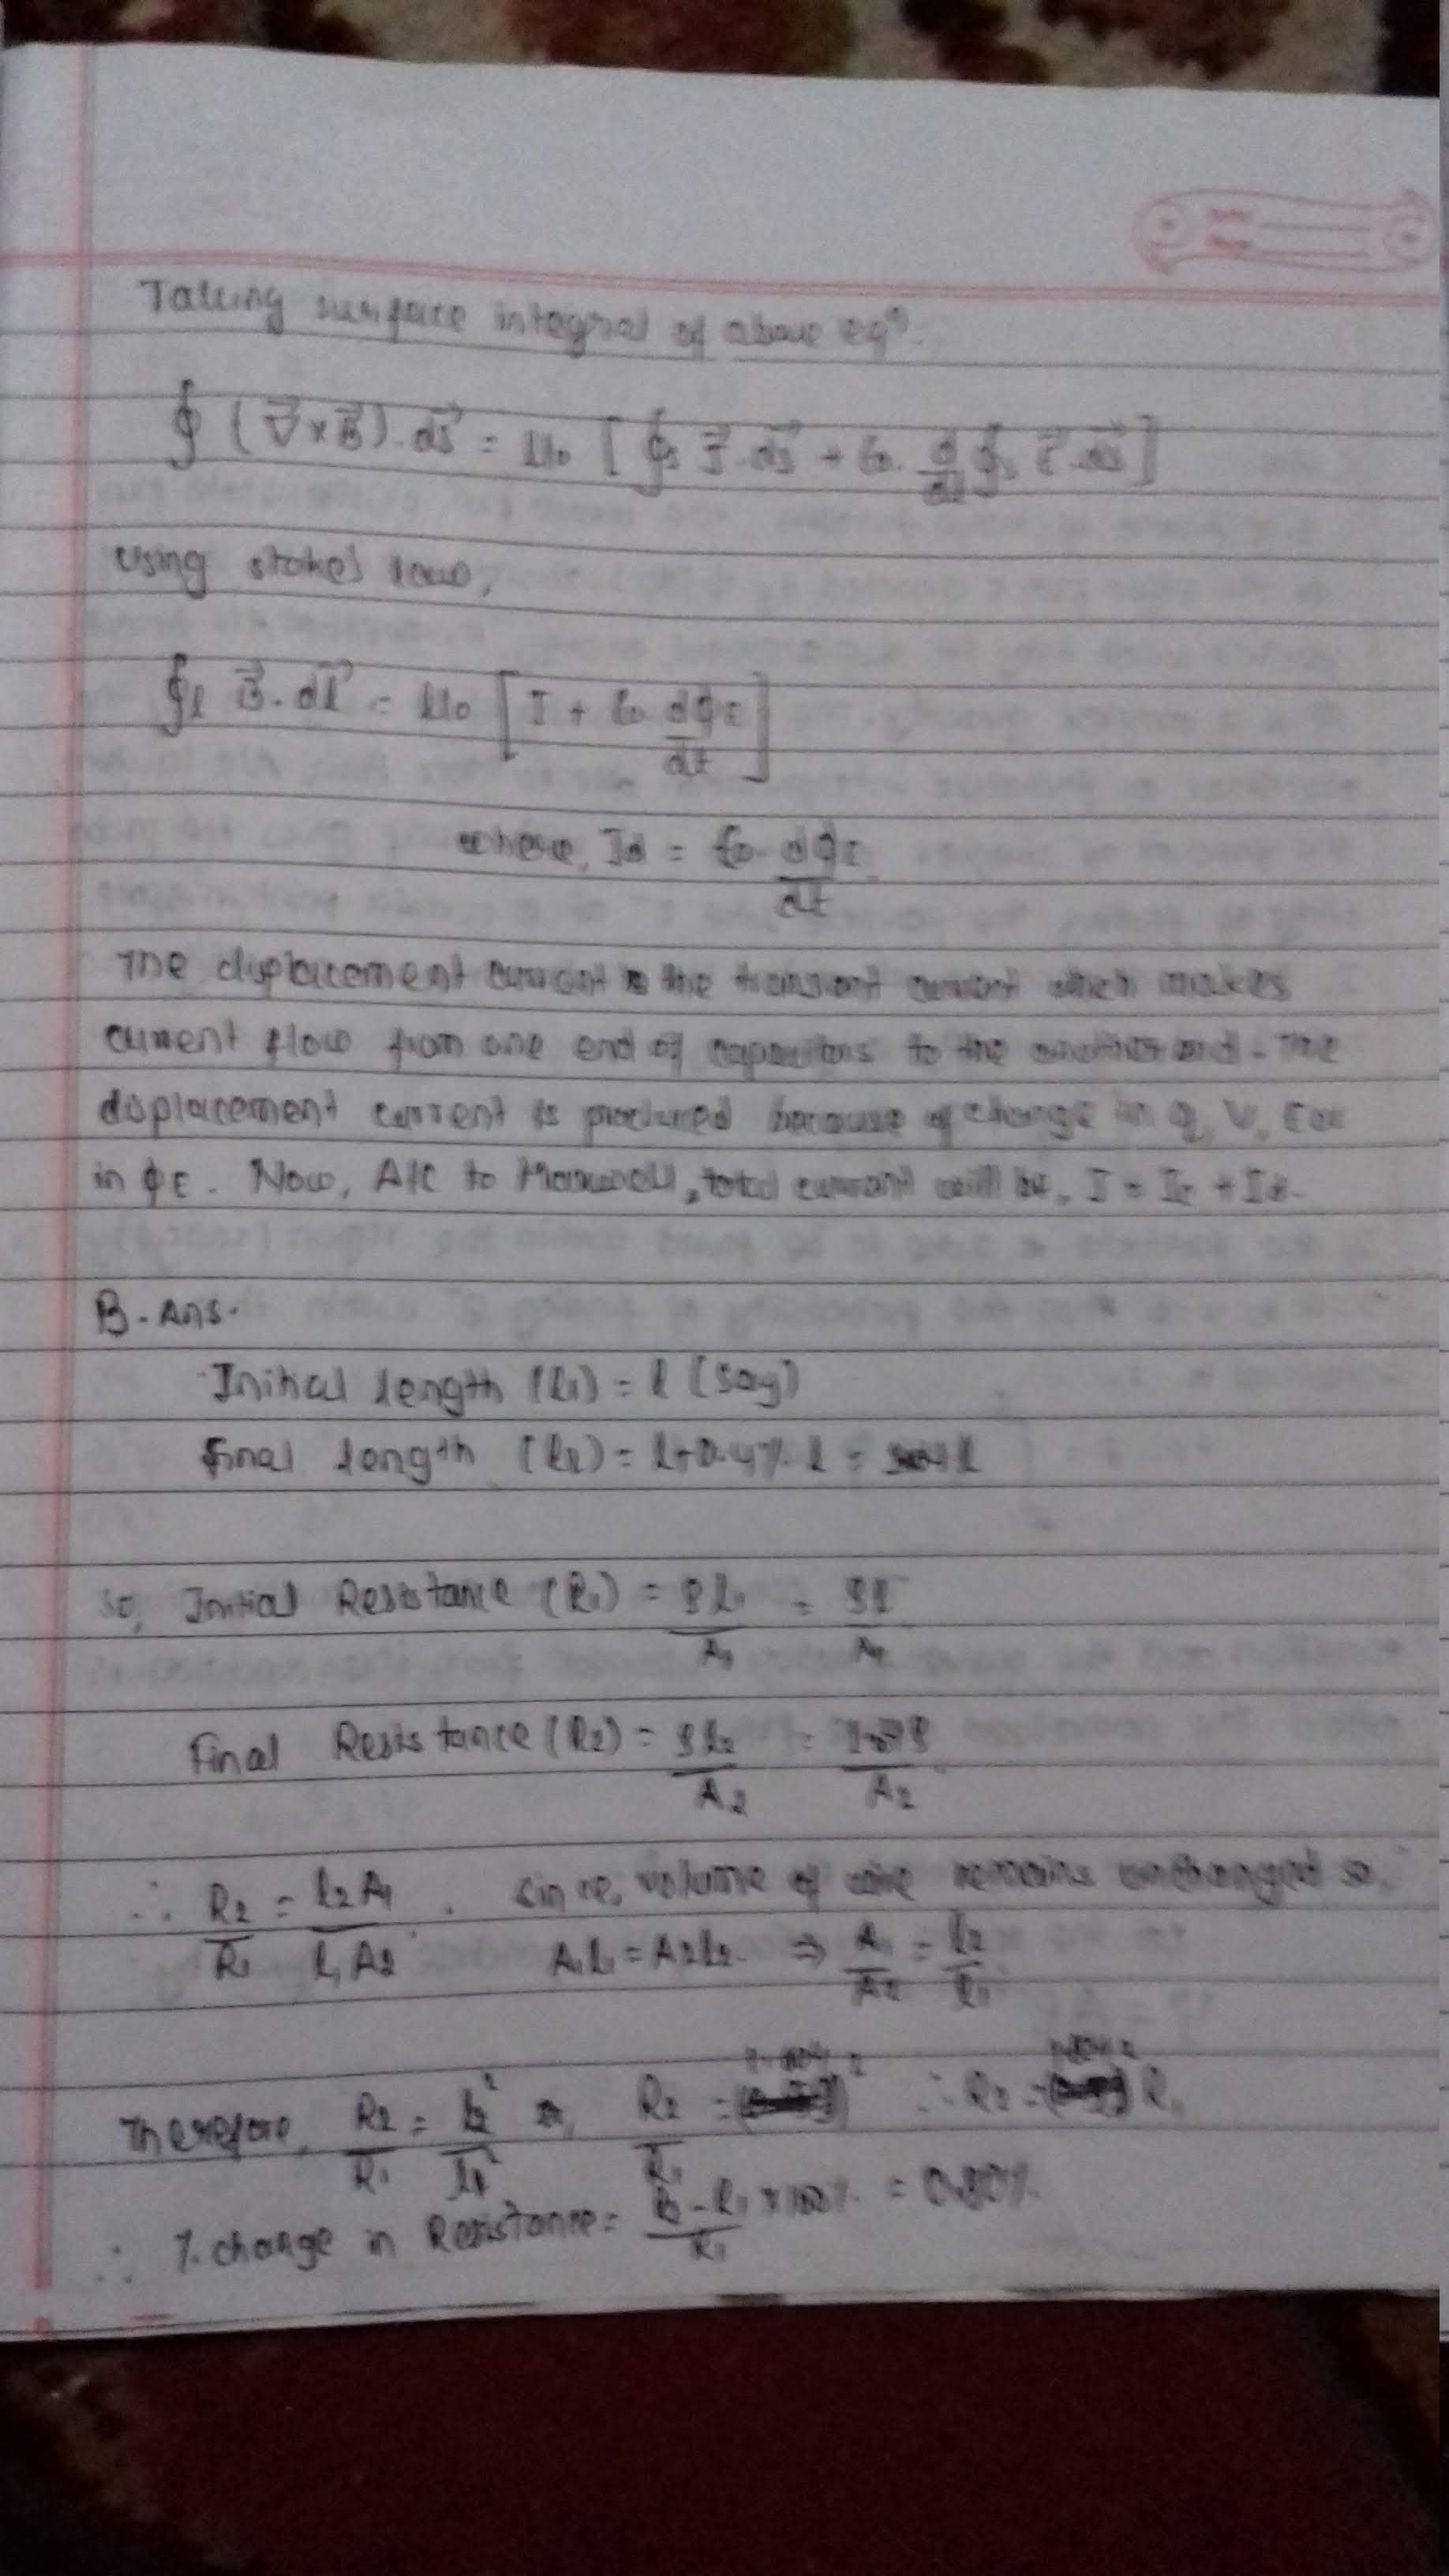 Taking surface integral of above eqⁿ.
∮ (∇⃗×B⃗).ds⃗ = μ₀ [∮s J⃗.ds⃗ + ε₀. d/dt ∮s E⃗.ds⃗]
Using stoke's law,
∮l B⃗.dl⃗ = μ₀ [I + ε₀ dϕE/dt]
where, Id = ε₀. dϕE/dt
The displacement current is the transient current which makes
current flow from one end of capacitors to the another end. The
displacement current is produced because of change in q, V, E or
in ϕE. Now, A/C to Maxwell, total current will be, I = Ic + Id.
B. Ans.
Initial length (l₁) = l (say)
Final length (l₂) = l+0.4% l =
So, Initial Resistance (R₁) = ρl₁/A₁ = ρl/A₁
Final Resistance (R₂) = ρl₂/A₂ =
∴ R₂/R₁ = l₂A₁/l₁A₂. Since, volume of wire remains unchanged so,
A₁l₁ = A₂l₂. ⇒ A₁/A₂ = l₂/l₁
Therefore, R₂/R₁ = l₂²/l₁² R₂/R₁ = ∴ R₂ = R₁
∴ % change in Resistance = R₂-R₁/R₁ × 100% = 0.80%.